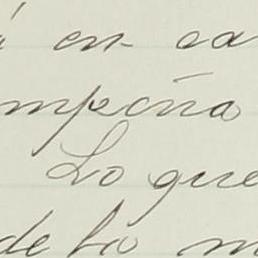 á en ca
mpeña
Lo que
de la m